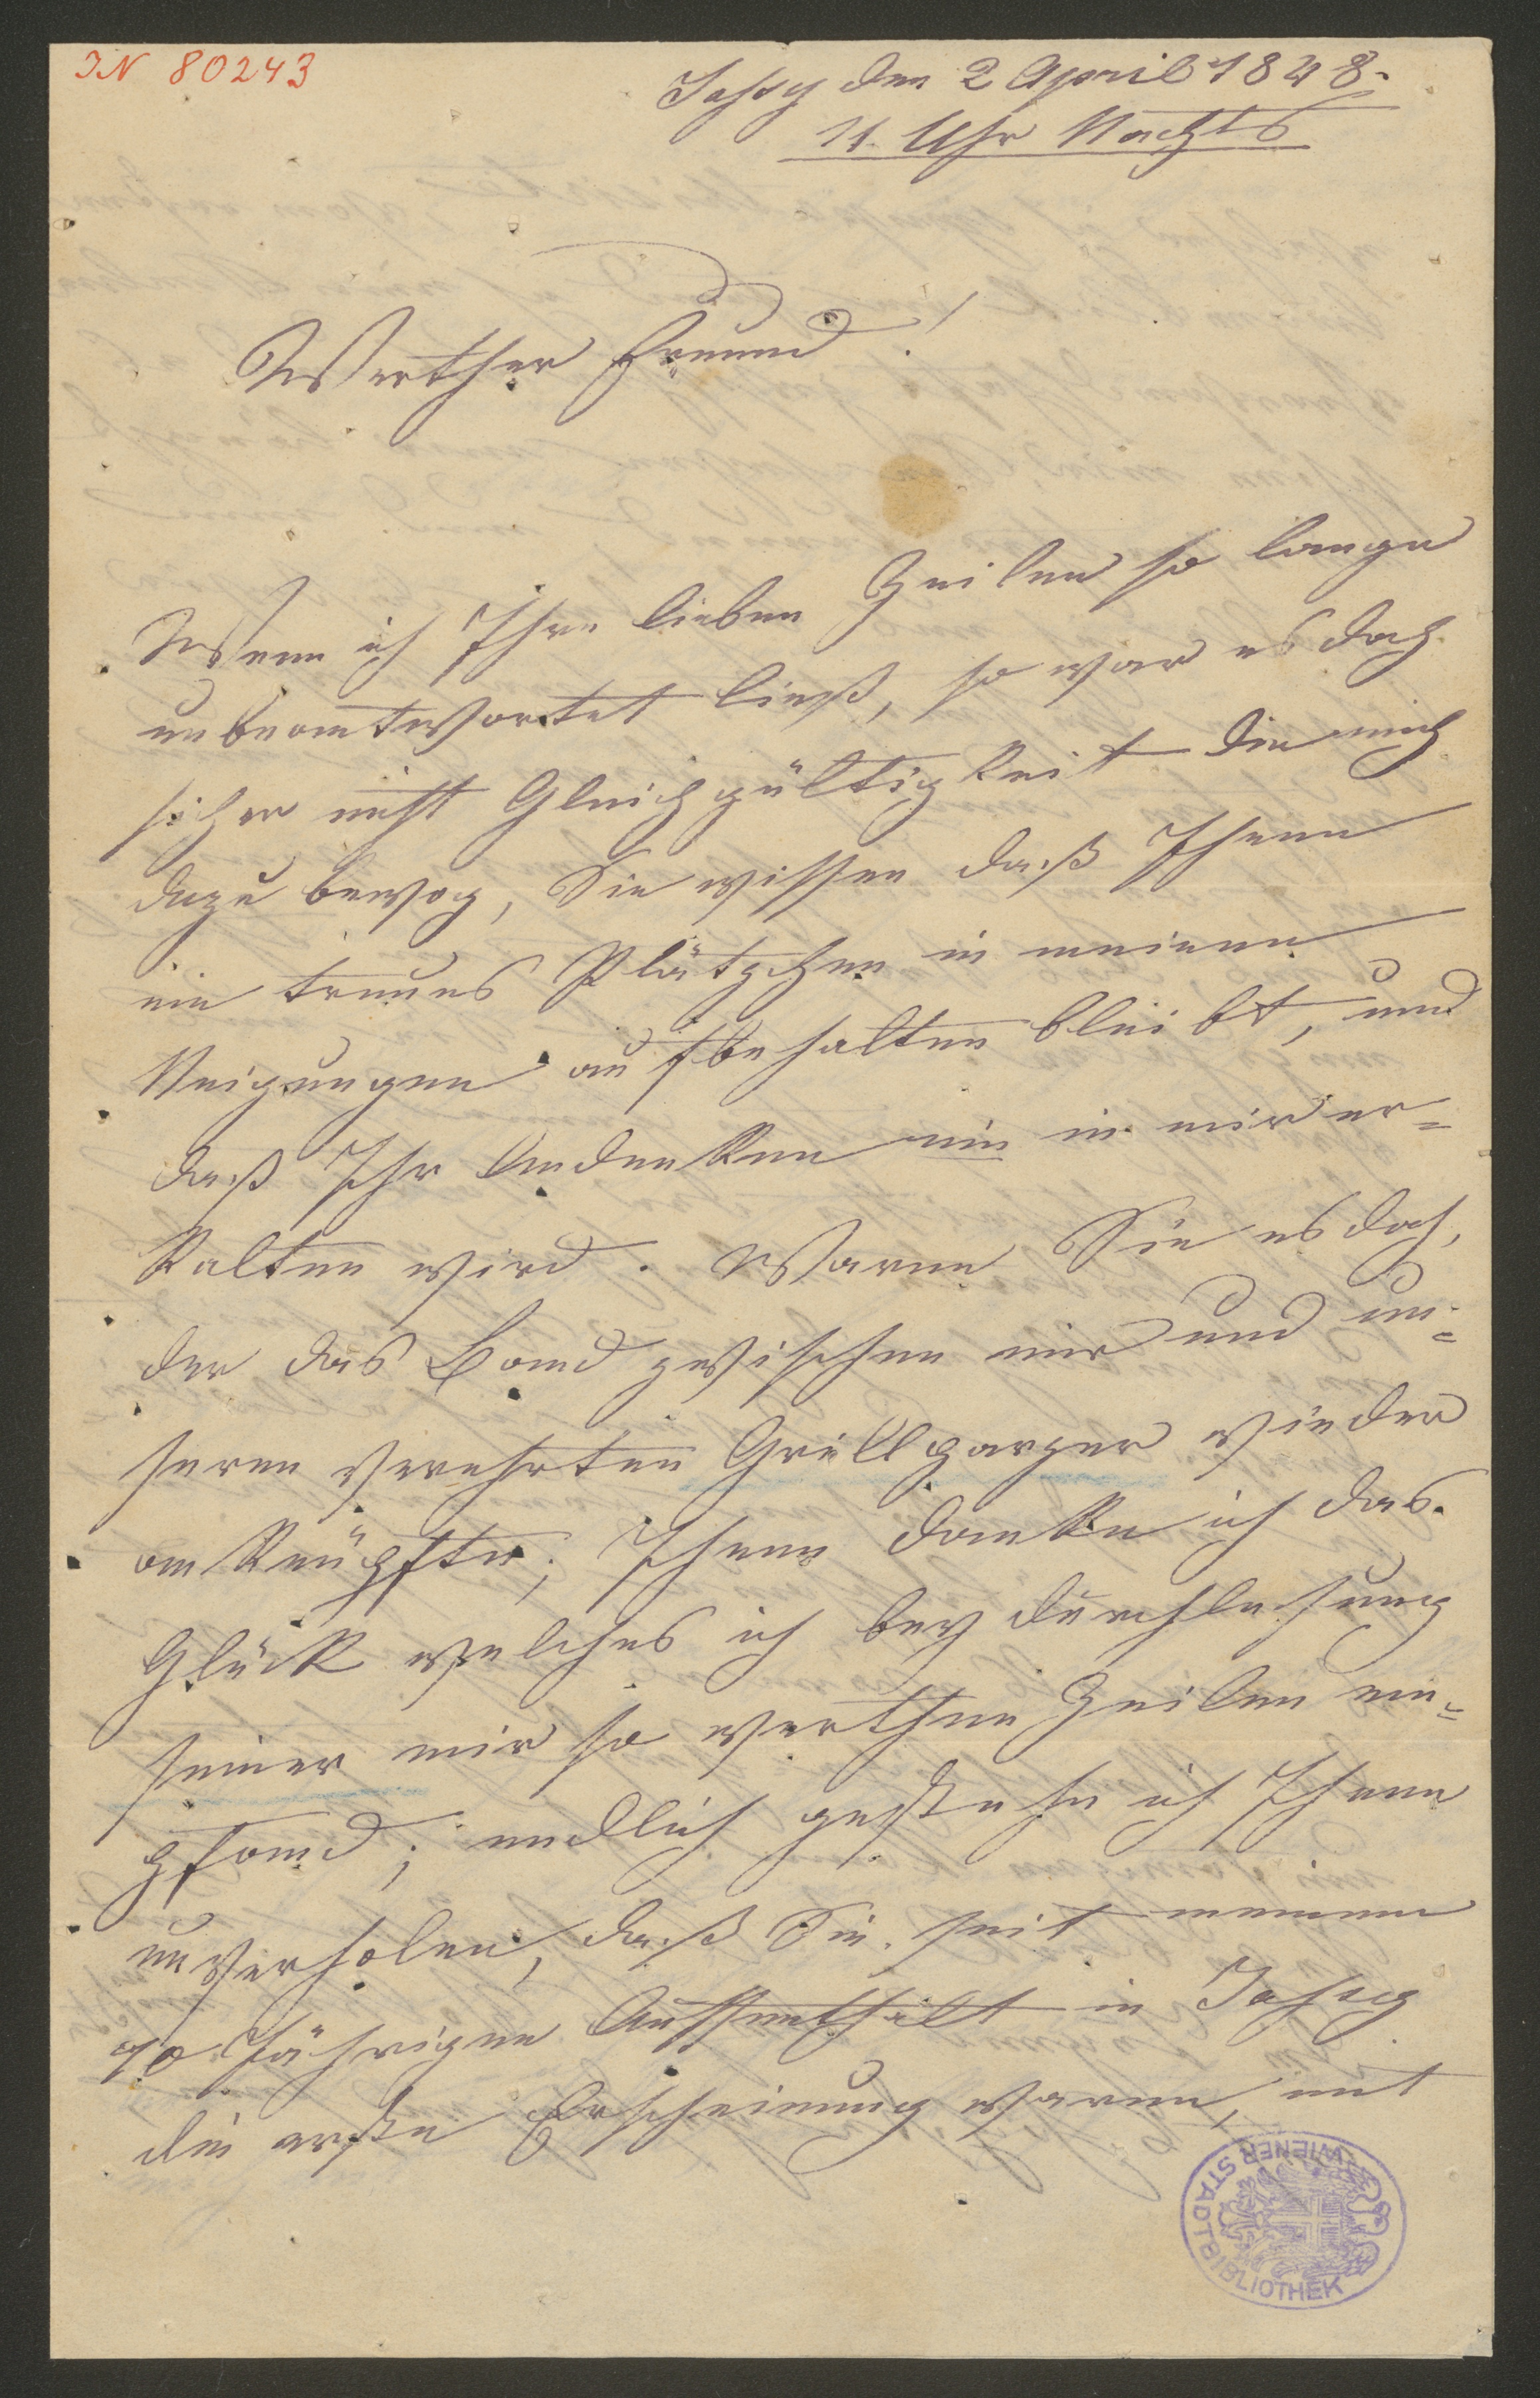 IN 80243
Jassy den 2 April 1848.
11. Uhr Nachts
Werther Freund!
Wenn ich Ihre lieben Zeilen so lange
unbeantwortet ließ, so war es doch
sicher nicht Gleichgültigkeit die mich
dazu bewog, Sie wissen daß Ihnen
ein treues Plätzchen in meinen
Neigungen aufbehalten bleibt, und
daß Ihr Andenken nie in mir er=
kalten wird. Waren Sie es doch,
der das Band zwischen mir und un=
seren verehrten Grillparzer wieder
anknüpfte; Ihnen danke ich das
Glück welches ich bey Durchlesung
seiner mir so werthen Zeilen em=
pfand; endlich gestehe ich Ihnen
unverholen, daß Sie seit meinem
10 jährigen Aufenthalt in Jassy
die erste Erscheinung waren, mit
WIENER STADTBIBLIOTHEK